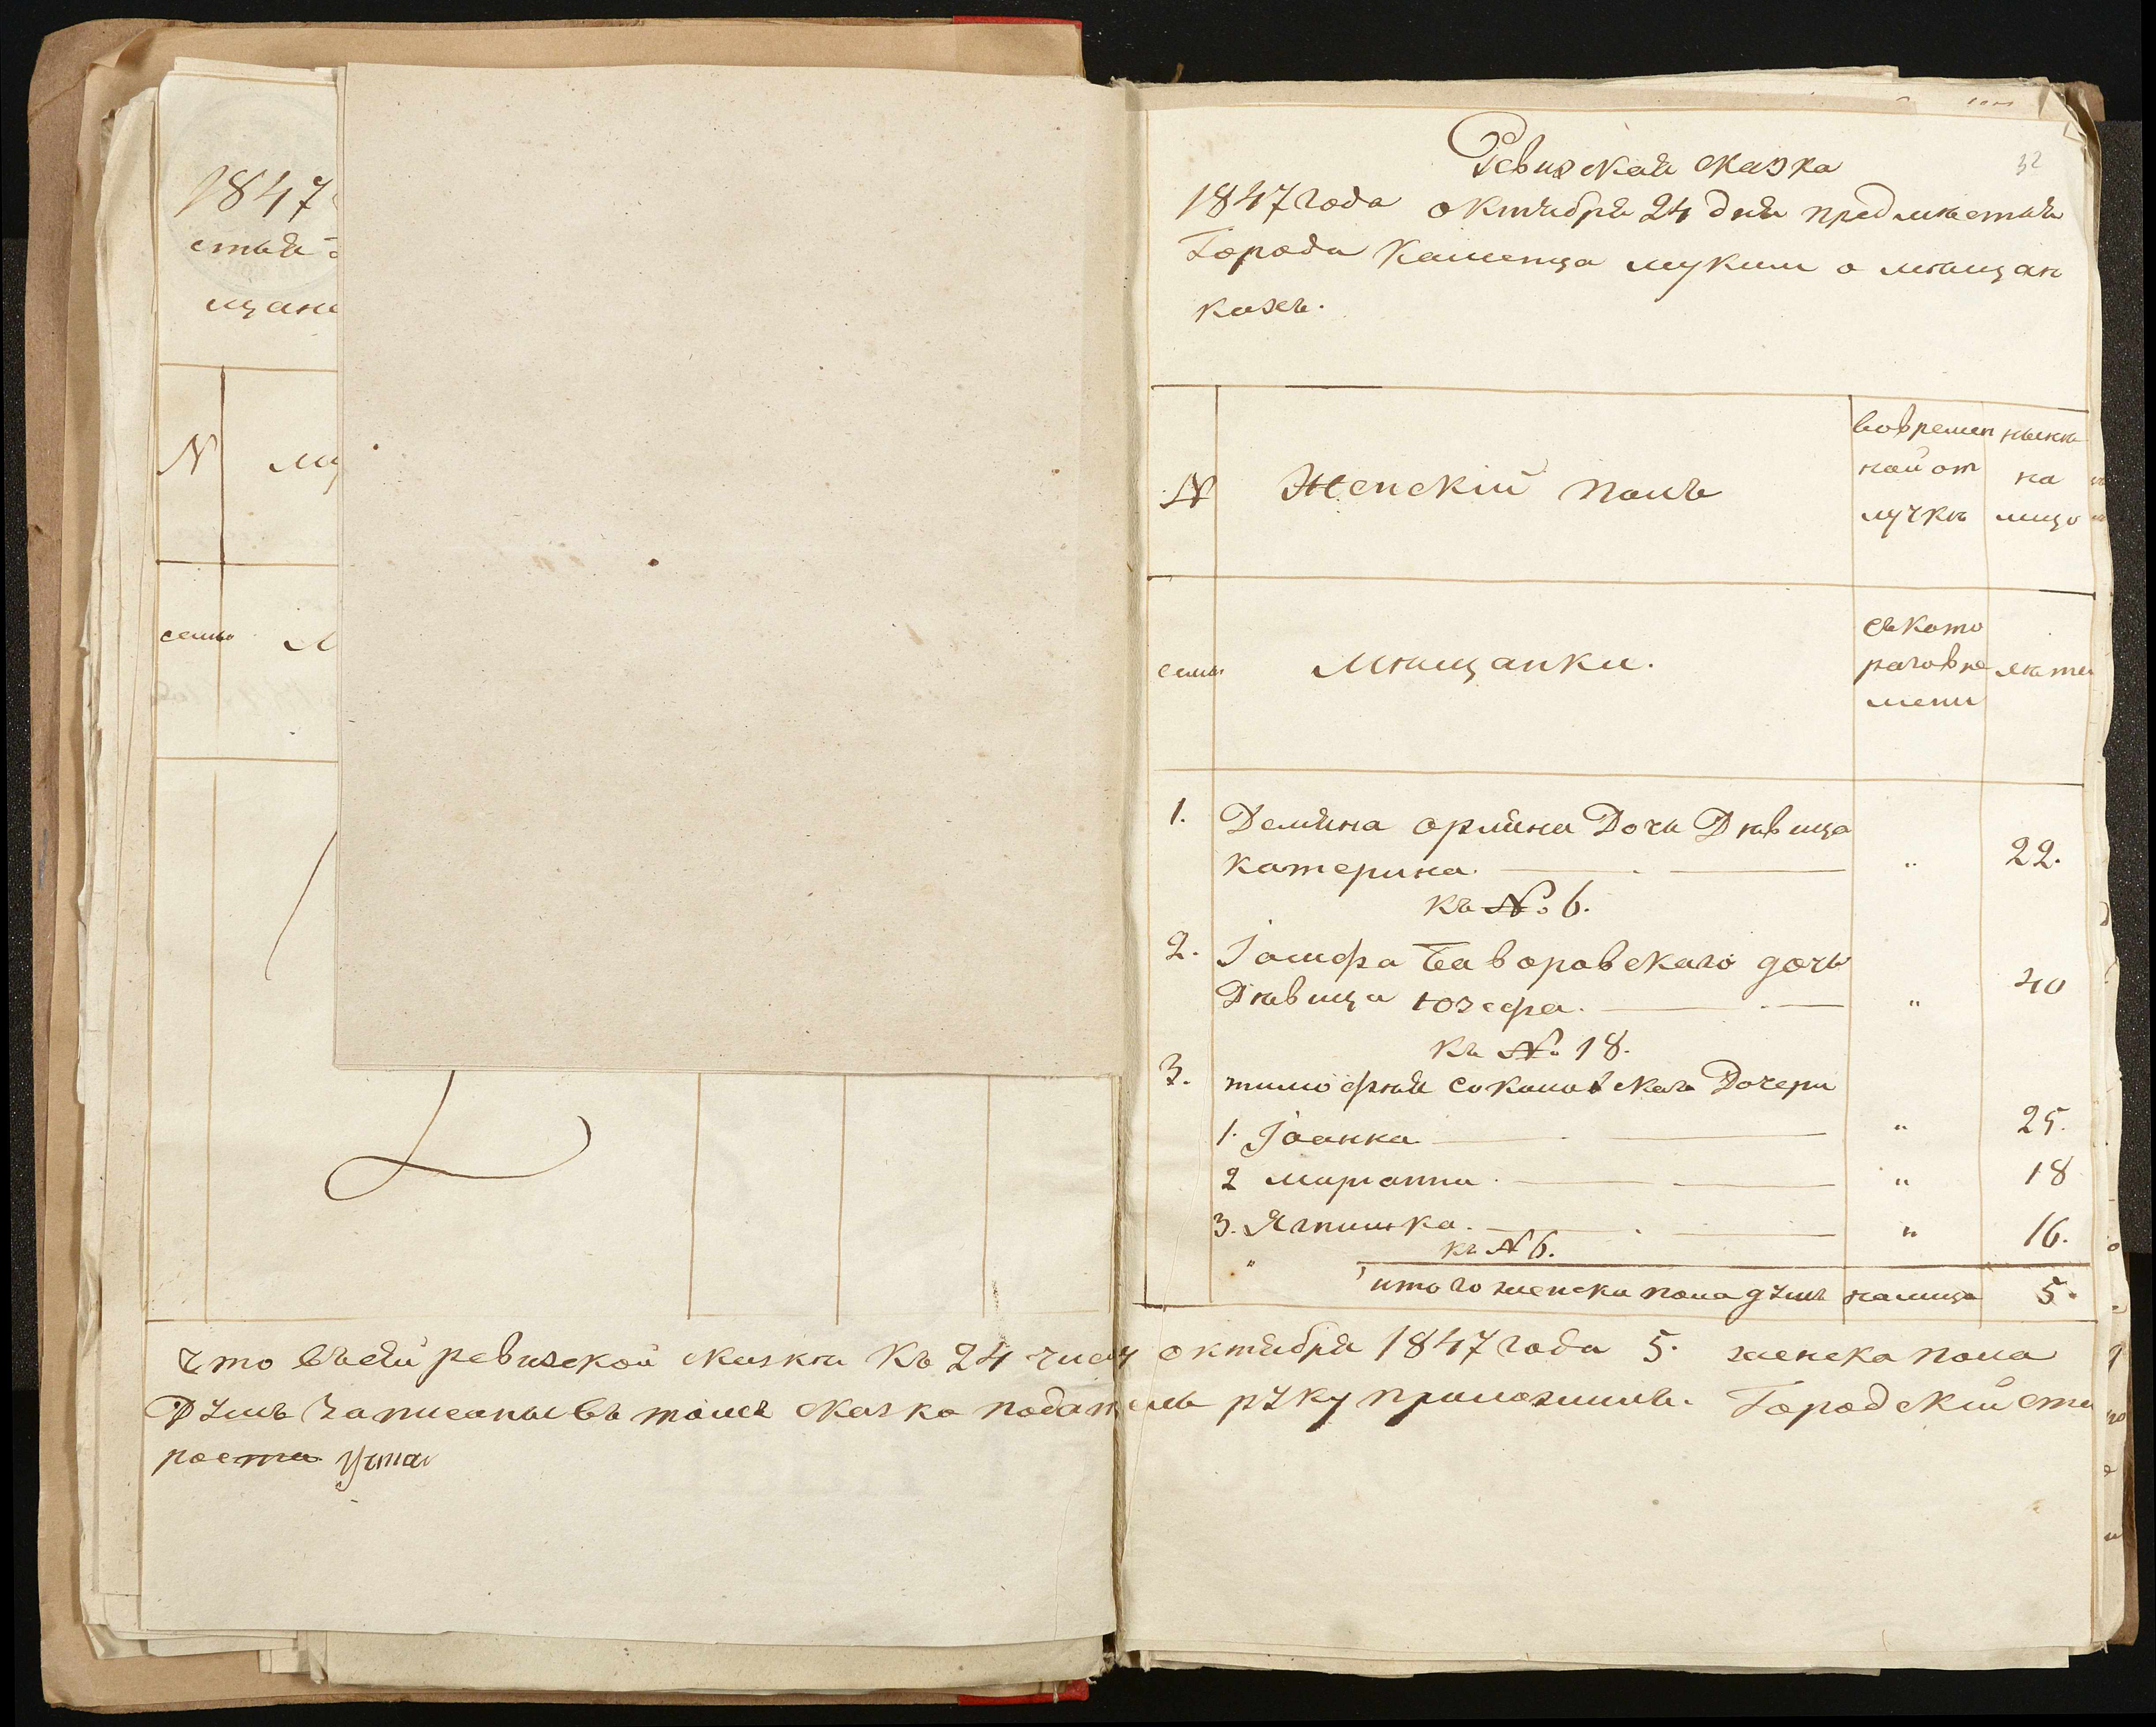 1847
стья
щане
N му
семьи М
32
Ревизская сказка
1847 года октября 24 дня предместья
Города Каменца мукши о мѣщан
кахъ.
N Женскій полъ
вовремен
ной от
лучкѣ
нынѣ
на
лицо
семьи Мѣщанки.
съкото
раговре
мени
лѣта
1. Демяна Дочь Дѣвица
катерина. " 22.
къ №: 6.
2. Іосифа Баворовскаго дочь
Дѣвица юзефа. " 40
къ №: 18.
3. тимофѣя Соколовскаго Дочери
1. Іоанна " 25.
2 марианна " 18
3. Ягнишка. " 16.
къ N 6.
итого женска пола душъ налицо 5.
что въсей ревизской сказки Къ 24 числу октября 1847 года 5. женска пола
Душъ записаны въ томъ сказка податель руку приложилъ. Городскій ста
роста